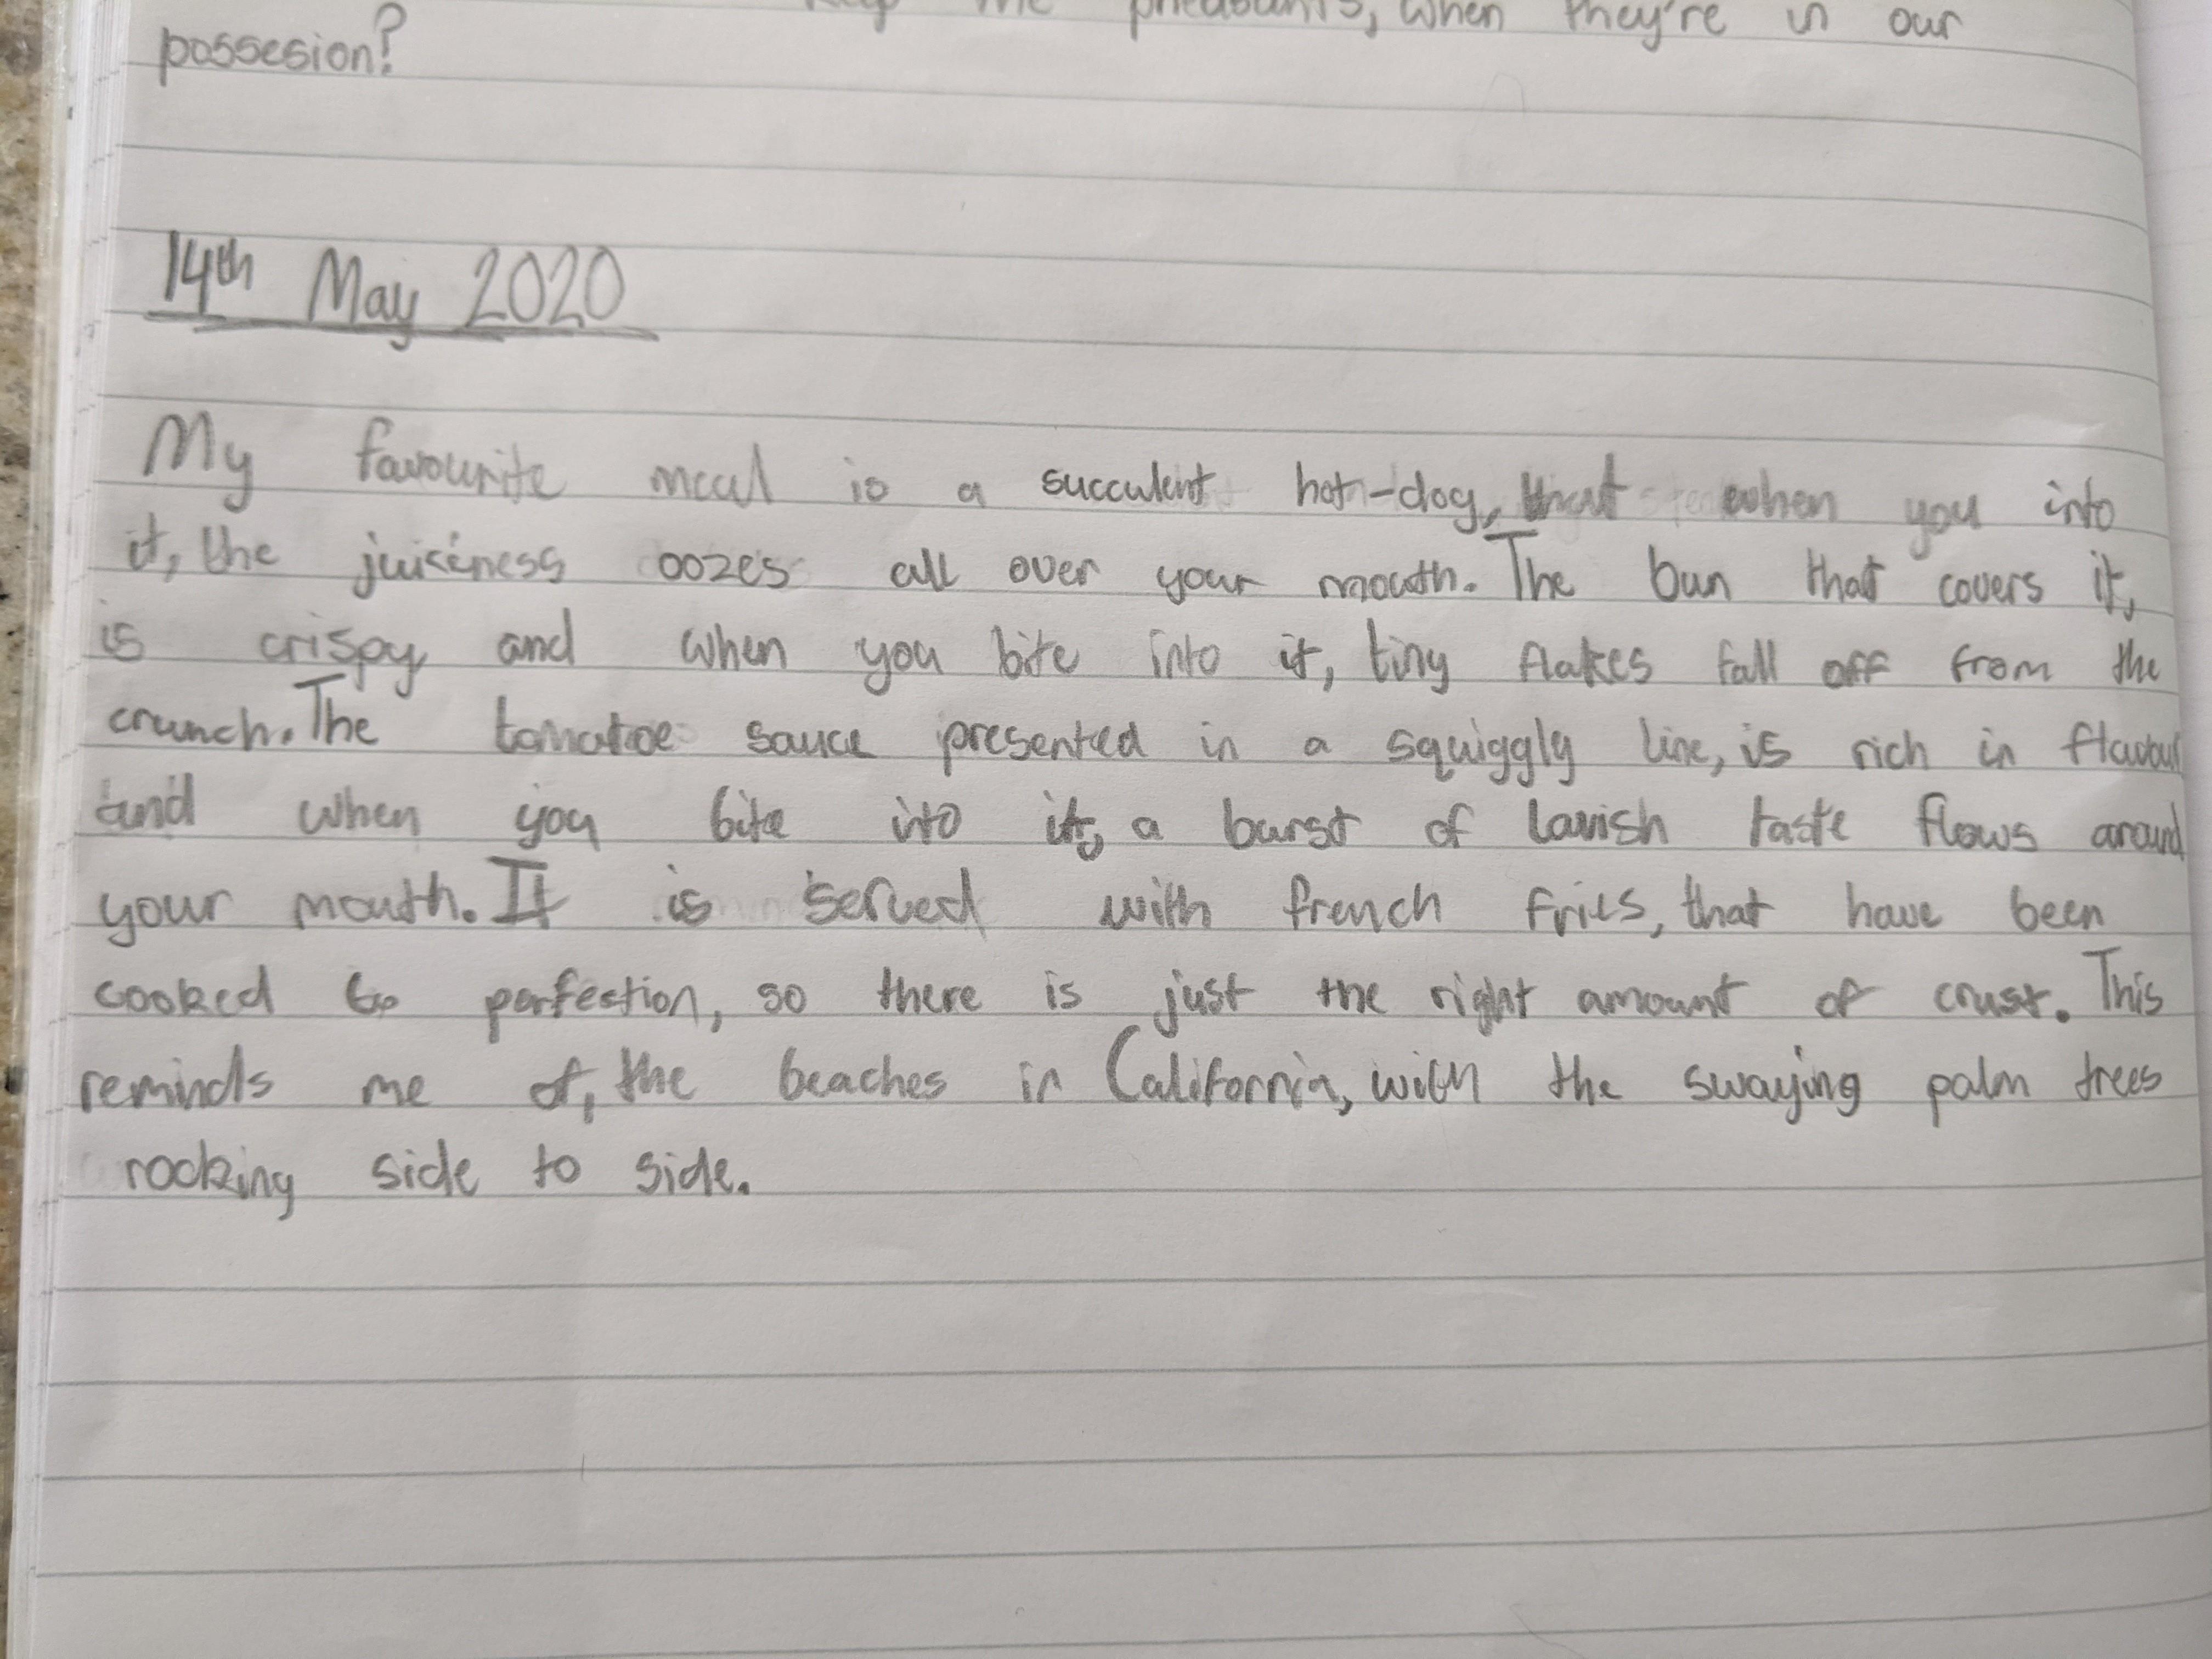 the pheasants, when they're in our
possesion?
14th May 2020
My favourite meal is a succulent hot-dog, that when you into
it, the juiceness oozes all over your mouth. The bun that covers it,
is crispy and when you bite into it, tiny flakes fall off from the
crunch. The tomatoe sauce presented in a squiggly line, is rich in flavour
and when you bite into it, a burst of lavish taste flows around
your mouth. It is served with french fries, that have been
cooked to perfection, so there is just the right amount of crust. This
reminds me of, the beaches in California, with the swaying palm trees
rocking side to side.